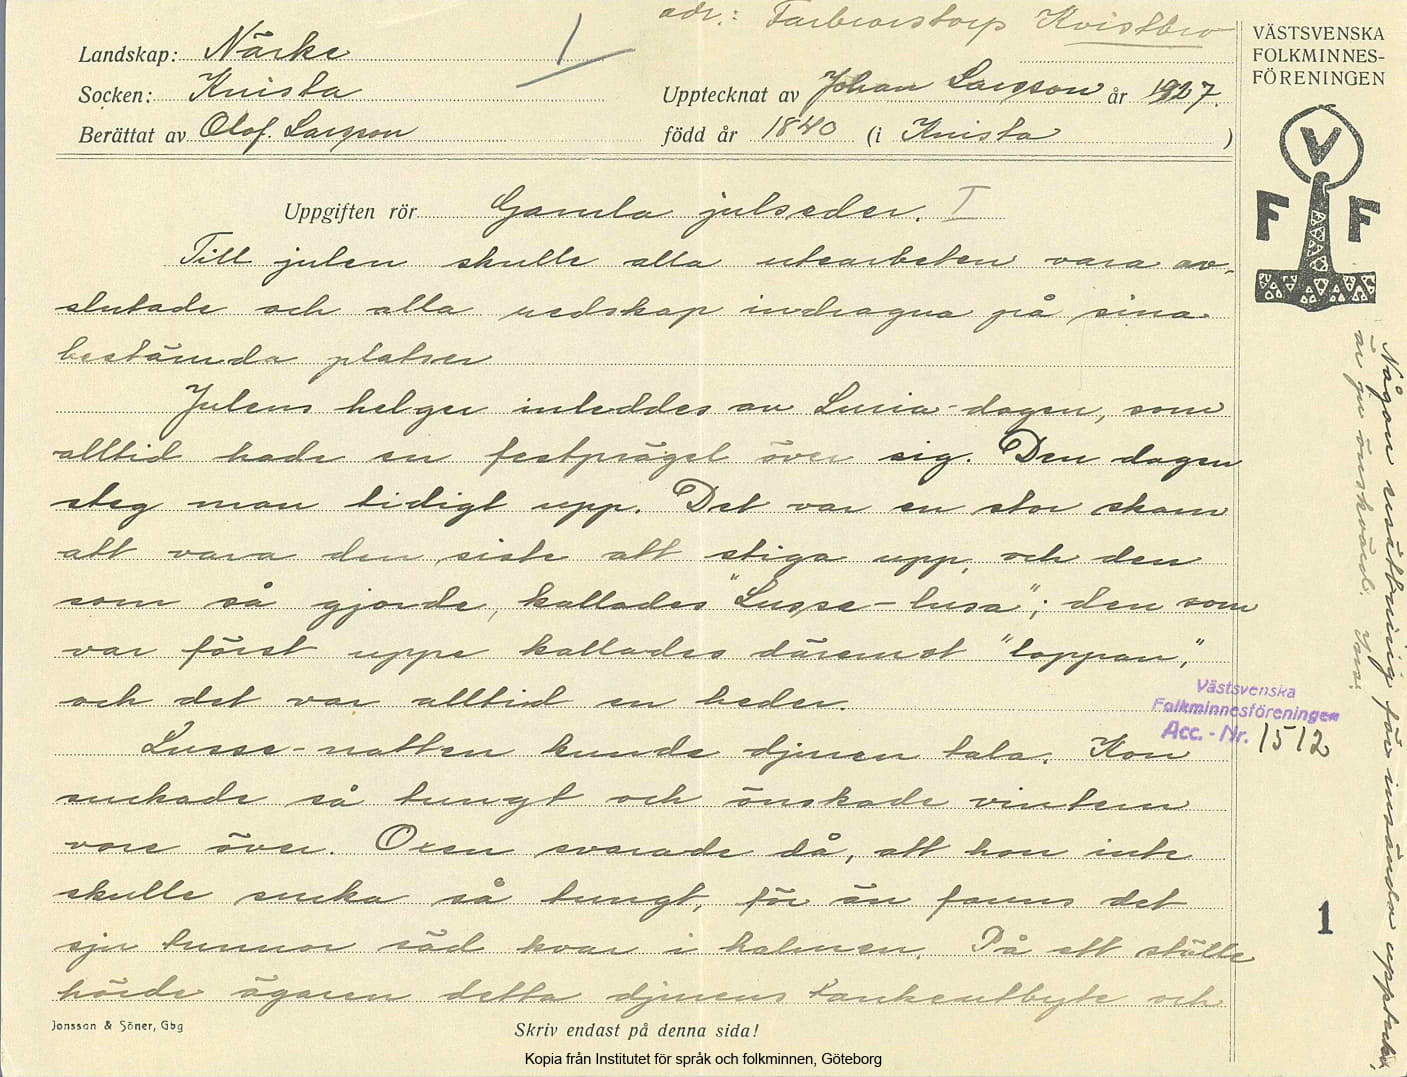 adr.: Farbrorstorp Kvistbro
Landskap: Närke
Socken: Knista
Berättat av Olof Larsson
Upptecknat av Johan Larsson år 1927.
född år 1840 (i Knista )
I
VÄSTSVENSKA
FOLKMINNES-
FÖRENINGEN
V
F F
Uppgiften rör Gamla julseder. I
Till julen skulle alla utearbeten vara av-
slutade och alla redskap indragna på sina
bestämda platser
Julens helger inleddes av Lucia-dagen, som
alltid hade en festprägel över sig. Den dagen
steg man tidigt upp. Det var en stor skam
att vara den siste att stiga upp, och den
som så gjorde, kallades "Lusse-lusa"; den som
var först uppe kallades däremot "loppan",
och det var alltid en heder.
Lusse-natten kunde djuren tala. Kon
suckade så tungt och önskade vintern
vore över. Oxen svarade då, att hon inte
skulle sucka så tungt, för än fanns det
sju tunnor säd kvar i halmen. På ett ställe
hörde ägaren detta djurens tankeutbyte och
Någon ersättning för insända uppteckn.
är ju önskvärd. Ins.
Västsvenska
Folkminnesföreningen
Acc. - Nr. 1512
1
Jonsson & Söner, Gbg
Skriv endast på denna sida!
Kopia från Institutet för språk och folkminnen, Göteborg